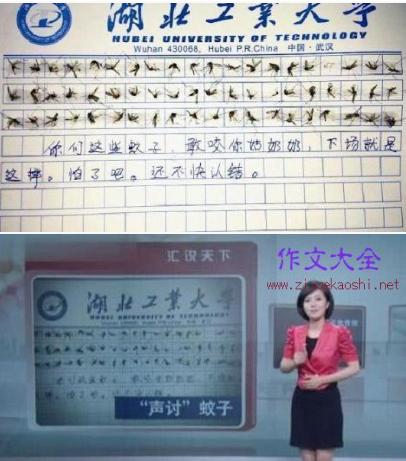 湖北工业大学
HUBEI UNIVERSITY OF TECHNOLOGY
Wuhan 430068, Hubei P.R.China 中国·武汉
你们这些蚊子,敢咬你姑奶奶,下场就是
这样。怕了吧。还不快认
汇说天下
作文大全
湖北工业大学
HUBEI UNIVERSITY OF TECHNOLOGY
“声讨”蚊子